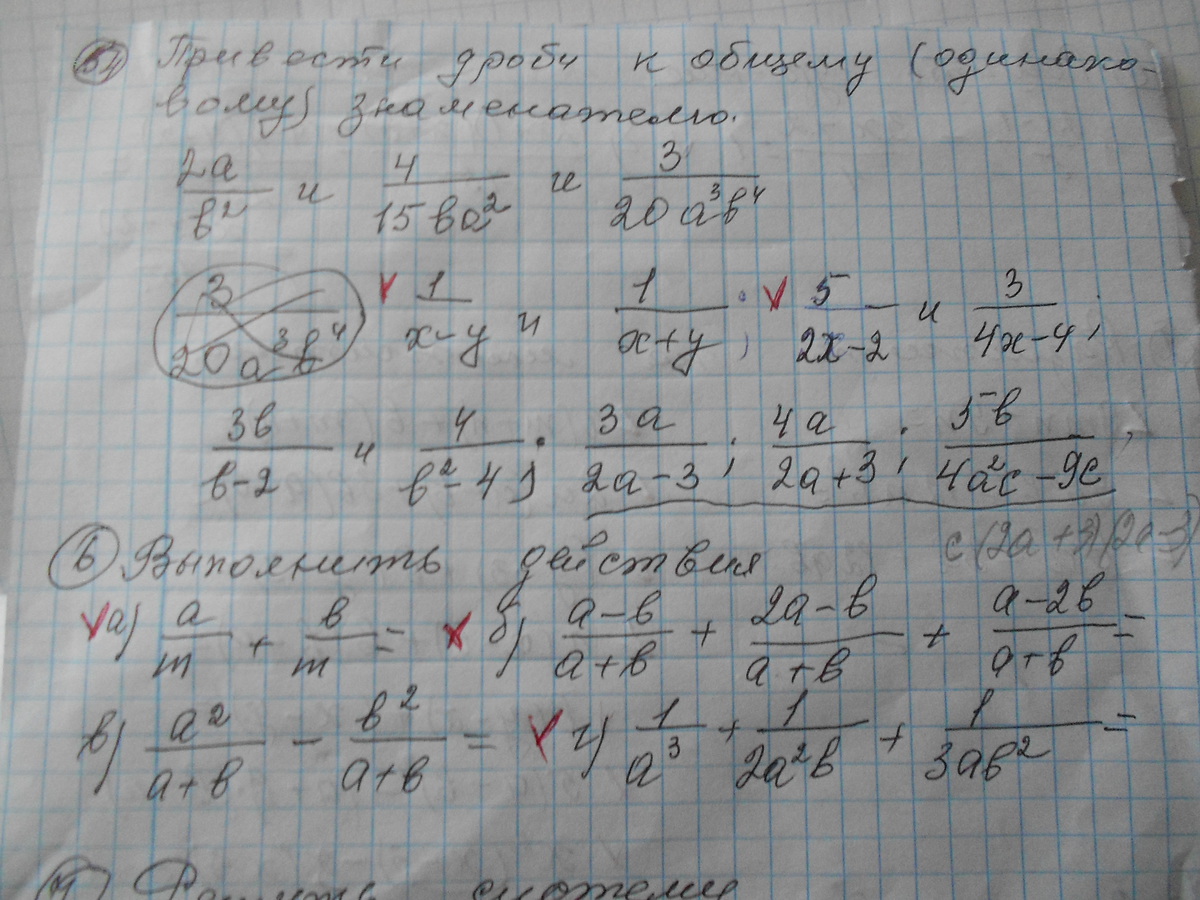 5) Привести дроби к общему (одинако-
вому) знаменателю.
2a/b² и 4/15ba² и 3/20a³b⁴
3/20a³b⁴ V 1/x-y и 1/x+y; V 5/2x-2 и 3/4x-4;
3b/b-2 и 4/b²-4; 3a/2a-3; 4a/2a+3; 5b/4a²c-9c,
c(2a+3)(2a-3)
6) Выполнить действия
V a) a/m + b/m = V б) a-b/a+b + 2a-b/a+b + a-2b/a+b =
в) a²/a+b - b²/a+b = V г) 1/a³ + 1/2a²b + 1/3ab² =